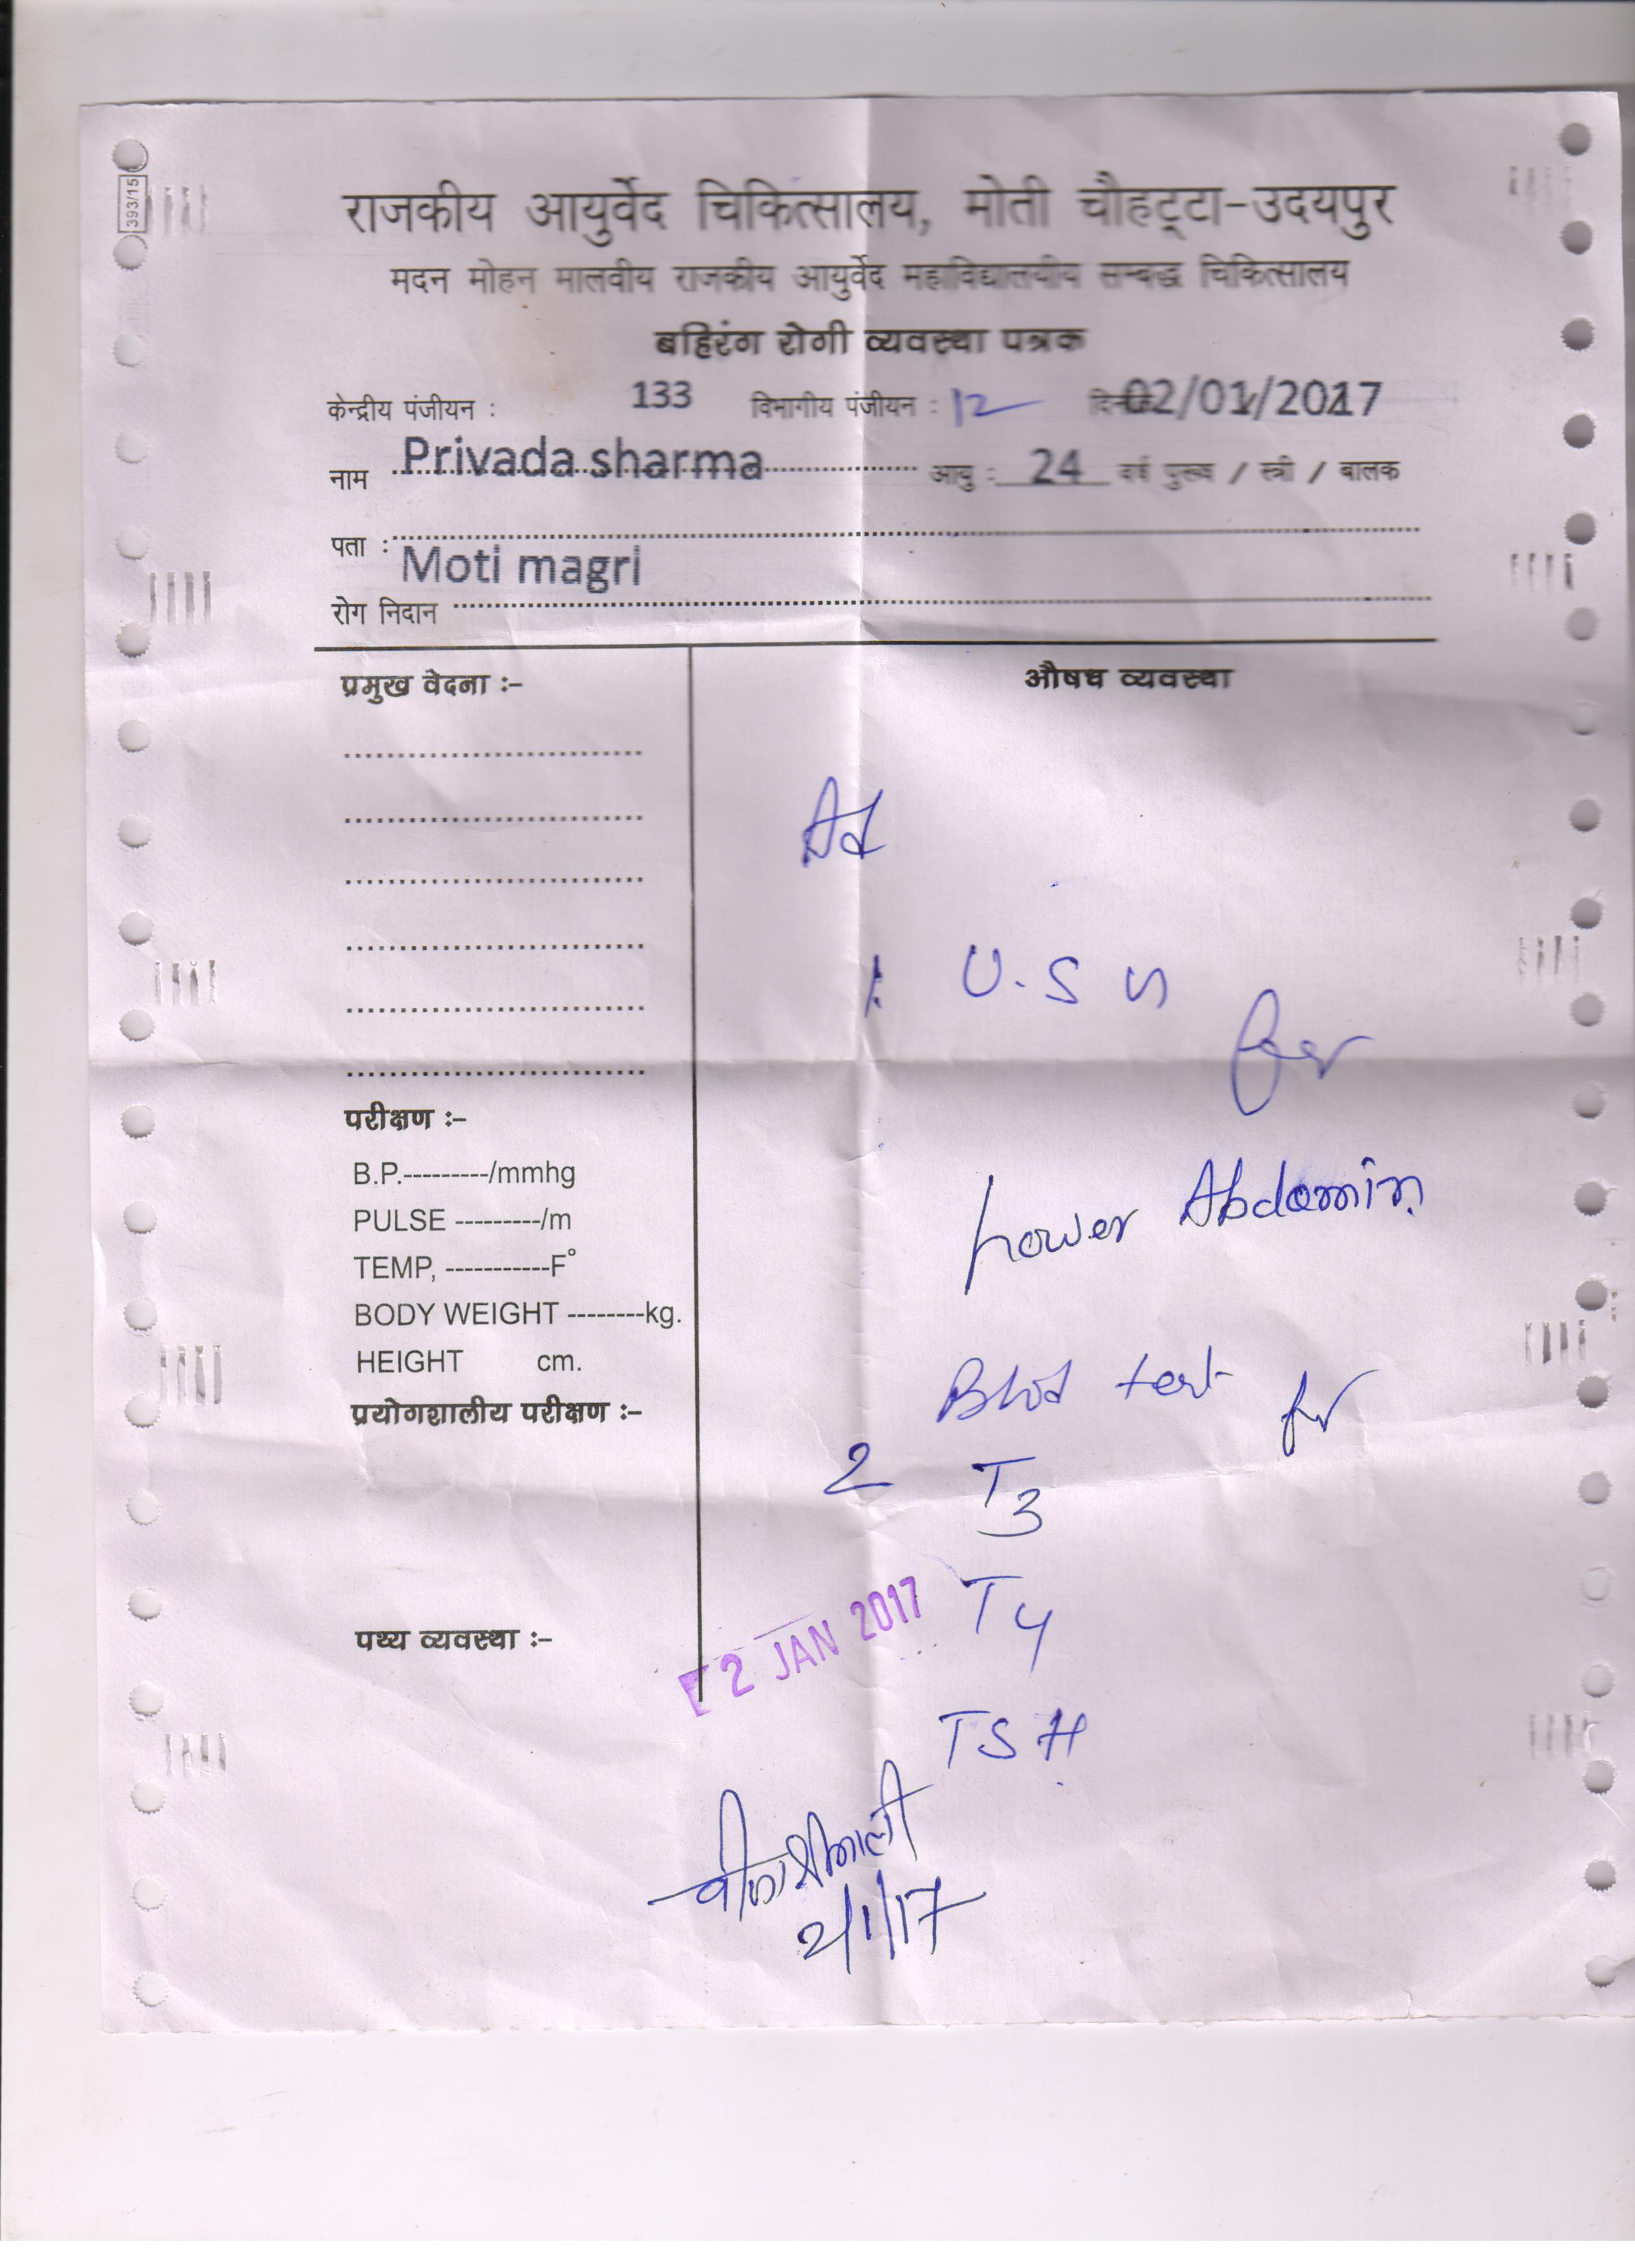 393/15
राजकीय आयुर्वेद चिकित्सालय, मोती चौहट्टा-उदयपुर
मदन मोहन मालवीय राजकीय आयुर्वेद महाविद्यालयीय सम्बद्ध चिकित्सालय
बहिरंग रोगी व्यवस्था पत्रक
केन्द्रीय पंजीयन : 133 विभागीय पंजीयन : 12 02/01/2017
नाम Privada sharma आयु : 24 वर्ष पुरूष / स्त्री / बालक
पता :
Moti magri
रोग निदान
प्रमुख वेदना :- औषध व्यवस्था
Ad
1. U.S G
for
Lower Abdomin
परीक्षण :-
B.P.---------/mmhg
PULSE ---------/m
TEMP, -----------F°
BODY WEIGHT --------kg.
HEIGHT cm.
प्रयोगशालीय परीक्षण :-
Blod test for
2 T3
T4
TSH
पथ्य व्यवस्था :-
2 JAN 2017
2/1/17